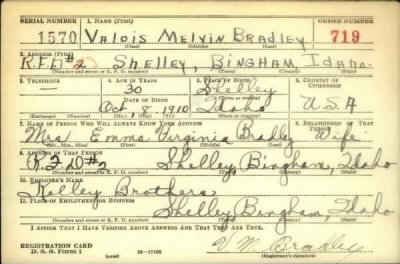 SERIAL NUMBER 1. NAME (Print) ORDER NUMBER
1570 VALOIS MELVIN BRADLEY 719
(First) (Middle) (Last)
2. ADDRESS (Print)
R.F.D #2 SHELLEY, BINGHAM, IDAHO.
(Number and street or R. F. D. number) (Town) (County) (State)
3. TELEPHONE 4. AGE IN YEARS 5. PLACE OF BIRTH 6. COUNTRY OF CITIZENSHIP
— 30 Shelley
DATE OF BIRTH (Town or county)
Oct. 8, 1910 Idaho U.S.A
(Exchange) (Number) (Mo.) (Day) (Yr.) (State or country)
7. NAME OF PERSON WHO WILL ALWAYS KNOW YOUR ADDRESS 8. RELATIONSHIP OF THAT PERSON
Mrs. Emma Virginia Bradley Wife
(Mr., Mrs., Miss) (First) (Middle) (Last)
9. ADDRESS OF THAT PERSON
R.F.D #2 Shelley, Bingham, Idaho
(Number and street or R. F. D. number) (Town) (County) (State)
10. EMPLOYER'S NAME
Brothers
11. PLACE OF EMPLOYMENT OR BUSINESS
Shelley, Bingham, Idaho
(Number and street or R. F. D. number) (Town) (County) (State)
I AFFIRM THAT I HAVE VERIFIED ABOVE ANSWERS AND THAT THEY ARE TRUE.
REGISTRATION CARD
D. S. S. Form 1 (over) V. M. Bradley
(Registrant's signature)